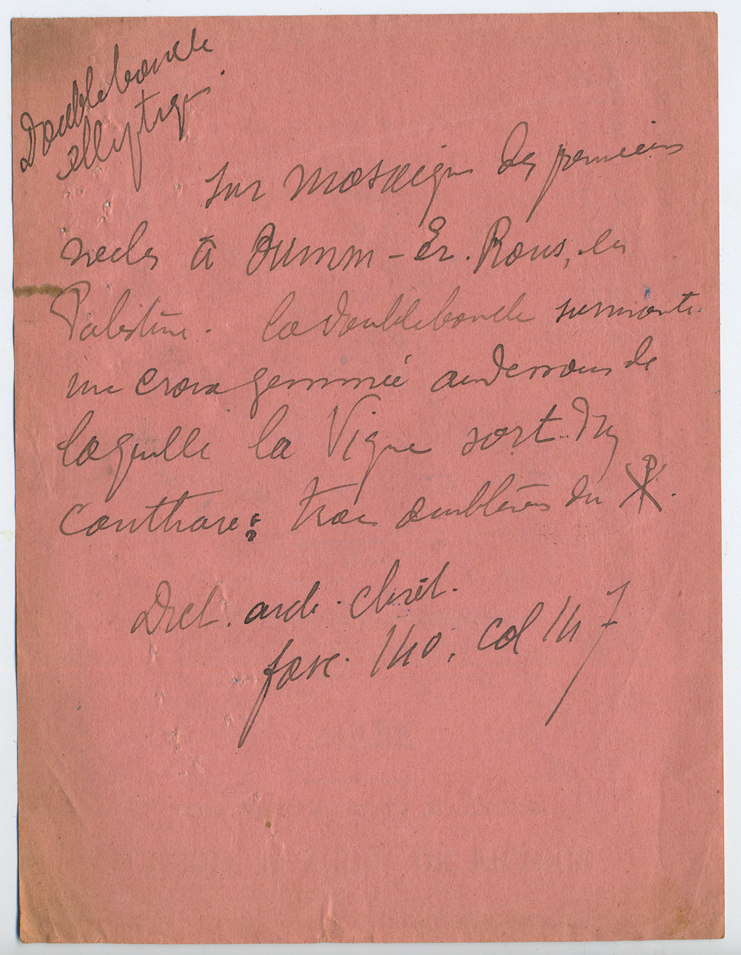 Doubleboucle
elliptiq.
Sur mosaïque des premiers
siecles à Oumm-Er-Rous, en
Palestine. la doubleboucle surmonte
une croix gemmée au dessous de
laquelle la Vigne sort du
canthare: trois emblèmes du ☧.
Dict. arch. chrét.
fasc. 140. col 147